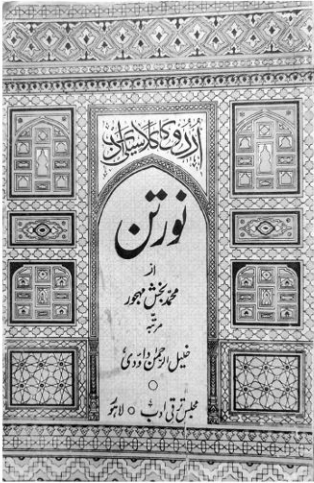 اردو کا کلاسیکی ادب
نورتن
از
محمد بخش مہجور
مرتبہ
خلیل الرحمن داودی
مجلس ترقی ادب ○ لاہور